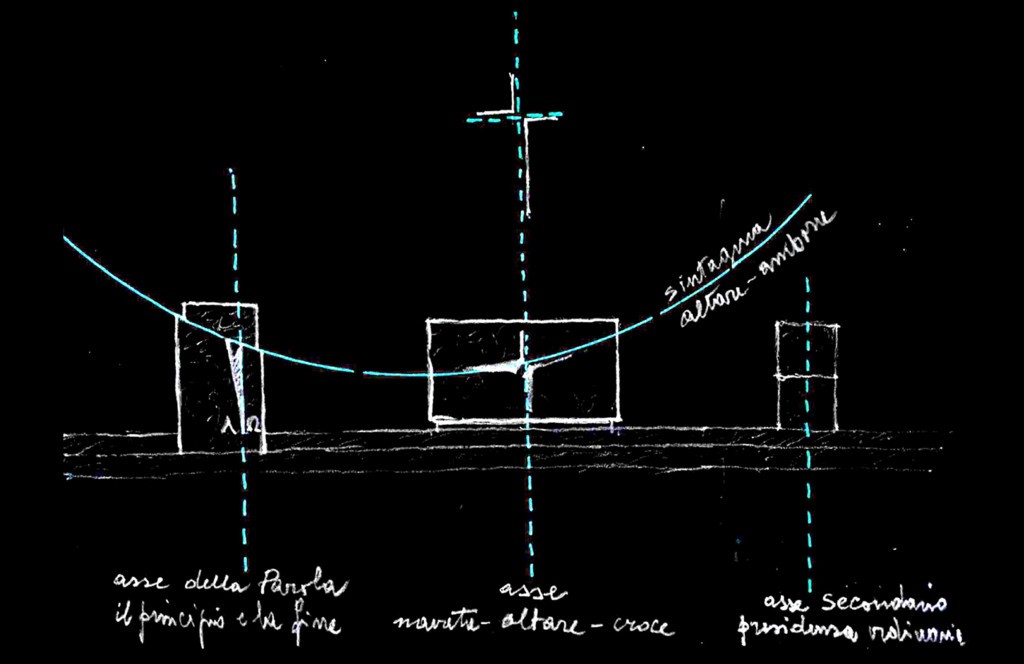 sintagma
altare-ambone
Λ Ω
asse della Parola
il principio e la fine
asse
navata-altare-croce
asse secondario
presidenza ordinaria